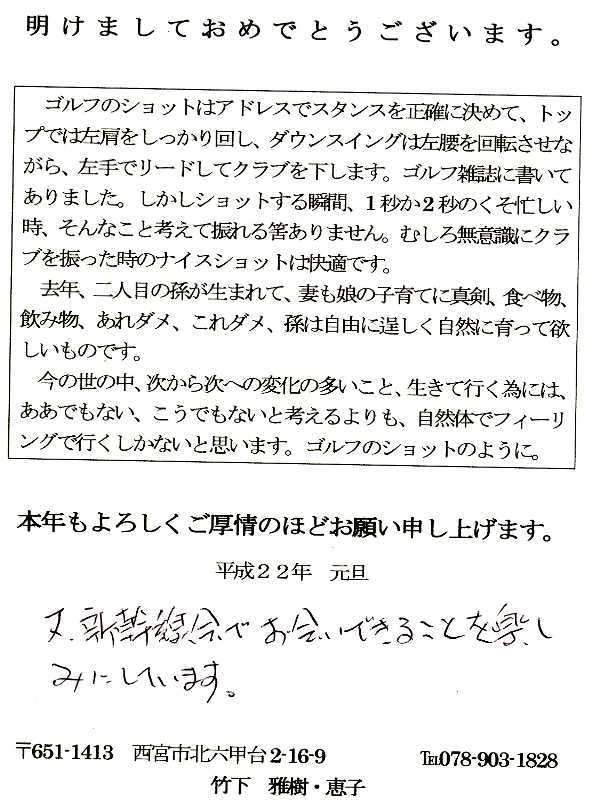 明けましておめでとうございます。
ゴルフのショットはアドレスでスタンスを正確に決めて、トッ
プでは左肩をしっかり回し、ダウンスイングは左腰を回転させな
がら、左手でリードしてクラブを下します。ゴルフ雑誌に書いて
ありました。しかしショットする瞬間、1秒か2秒のくそ忙しい
時、そんなこと考えて振れる筈ありません。むしろ無意識にクラ
ブを振った時のナイスショットは快適です。
去年、二人目の孫が生まれて、妻も娘の子育てに真剣、食べ物、
飲み物、あれダメ、これダメ、孫は自由に逞しく自然に育って欲
しいものです。
今の世の中、次から次への変化の多いこと、生きて行く為には、
ああでもない、こうでもないと考えるよりも、自然体でフィーリ
ングで行くしかないと思います。ゴルフのショットのように。
本年もよろしくご厚情のほどお願い申し上げます。
平成22年 元旦
又、新幹線会でお会いできることを楽し
みにしています。
〒651-1413 西宮市北六甲台2-16-9 ℡078-903-1828
竹下 雅樹・恵子